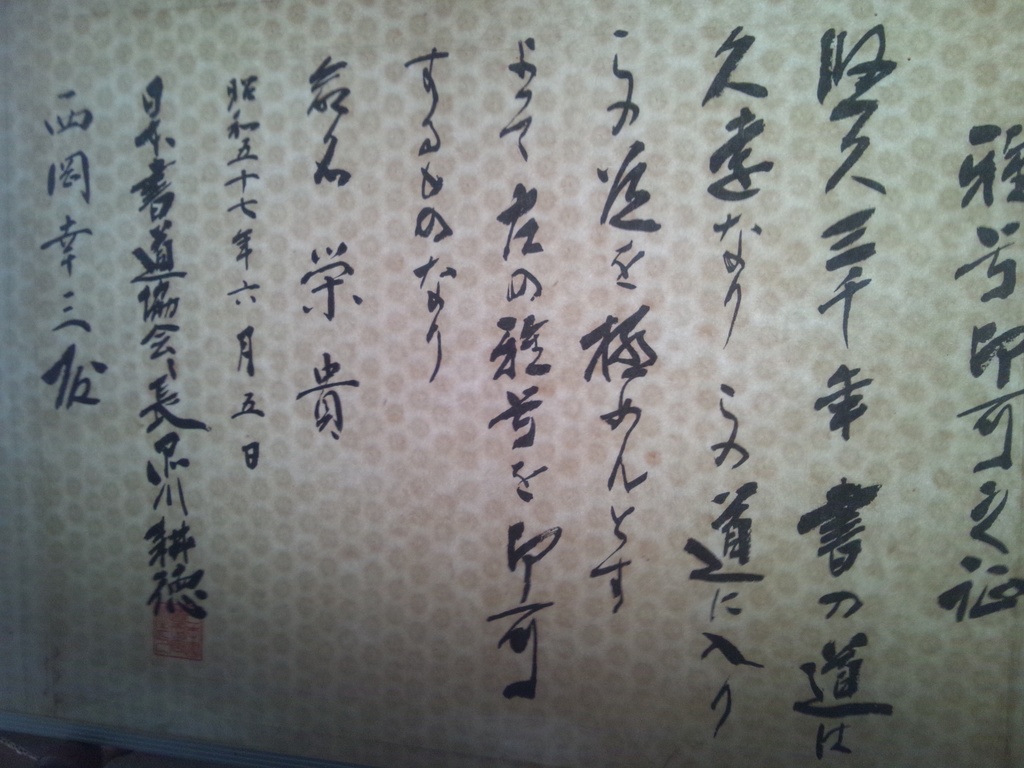 雅号印可之証
堅久三千年書の道は
久遠なり この道に入り
この道を極めんとす
よって左の雅号を印可
するものなり
命名 栄貴
昭和五十七年六月五日
日本書道協会々長 川耕徳
西岡幸三殿